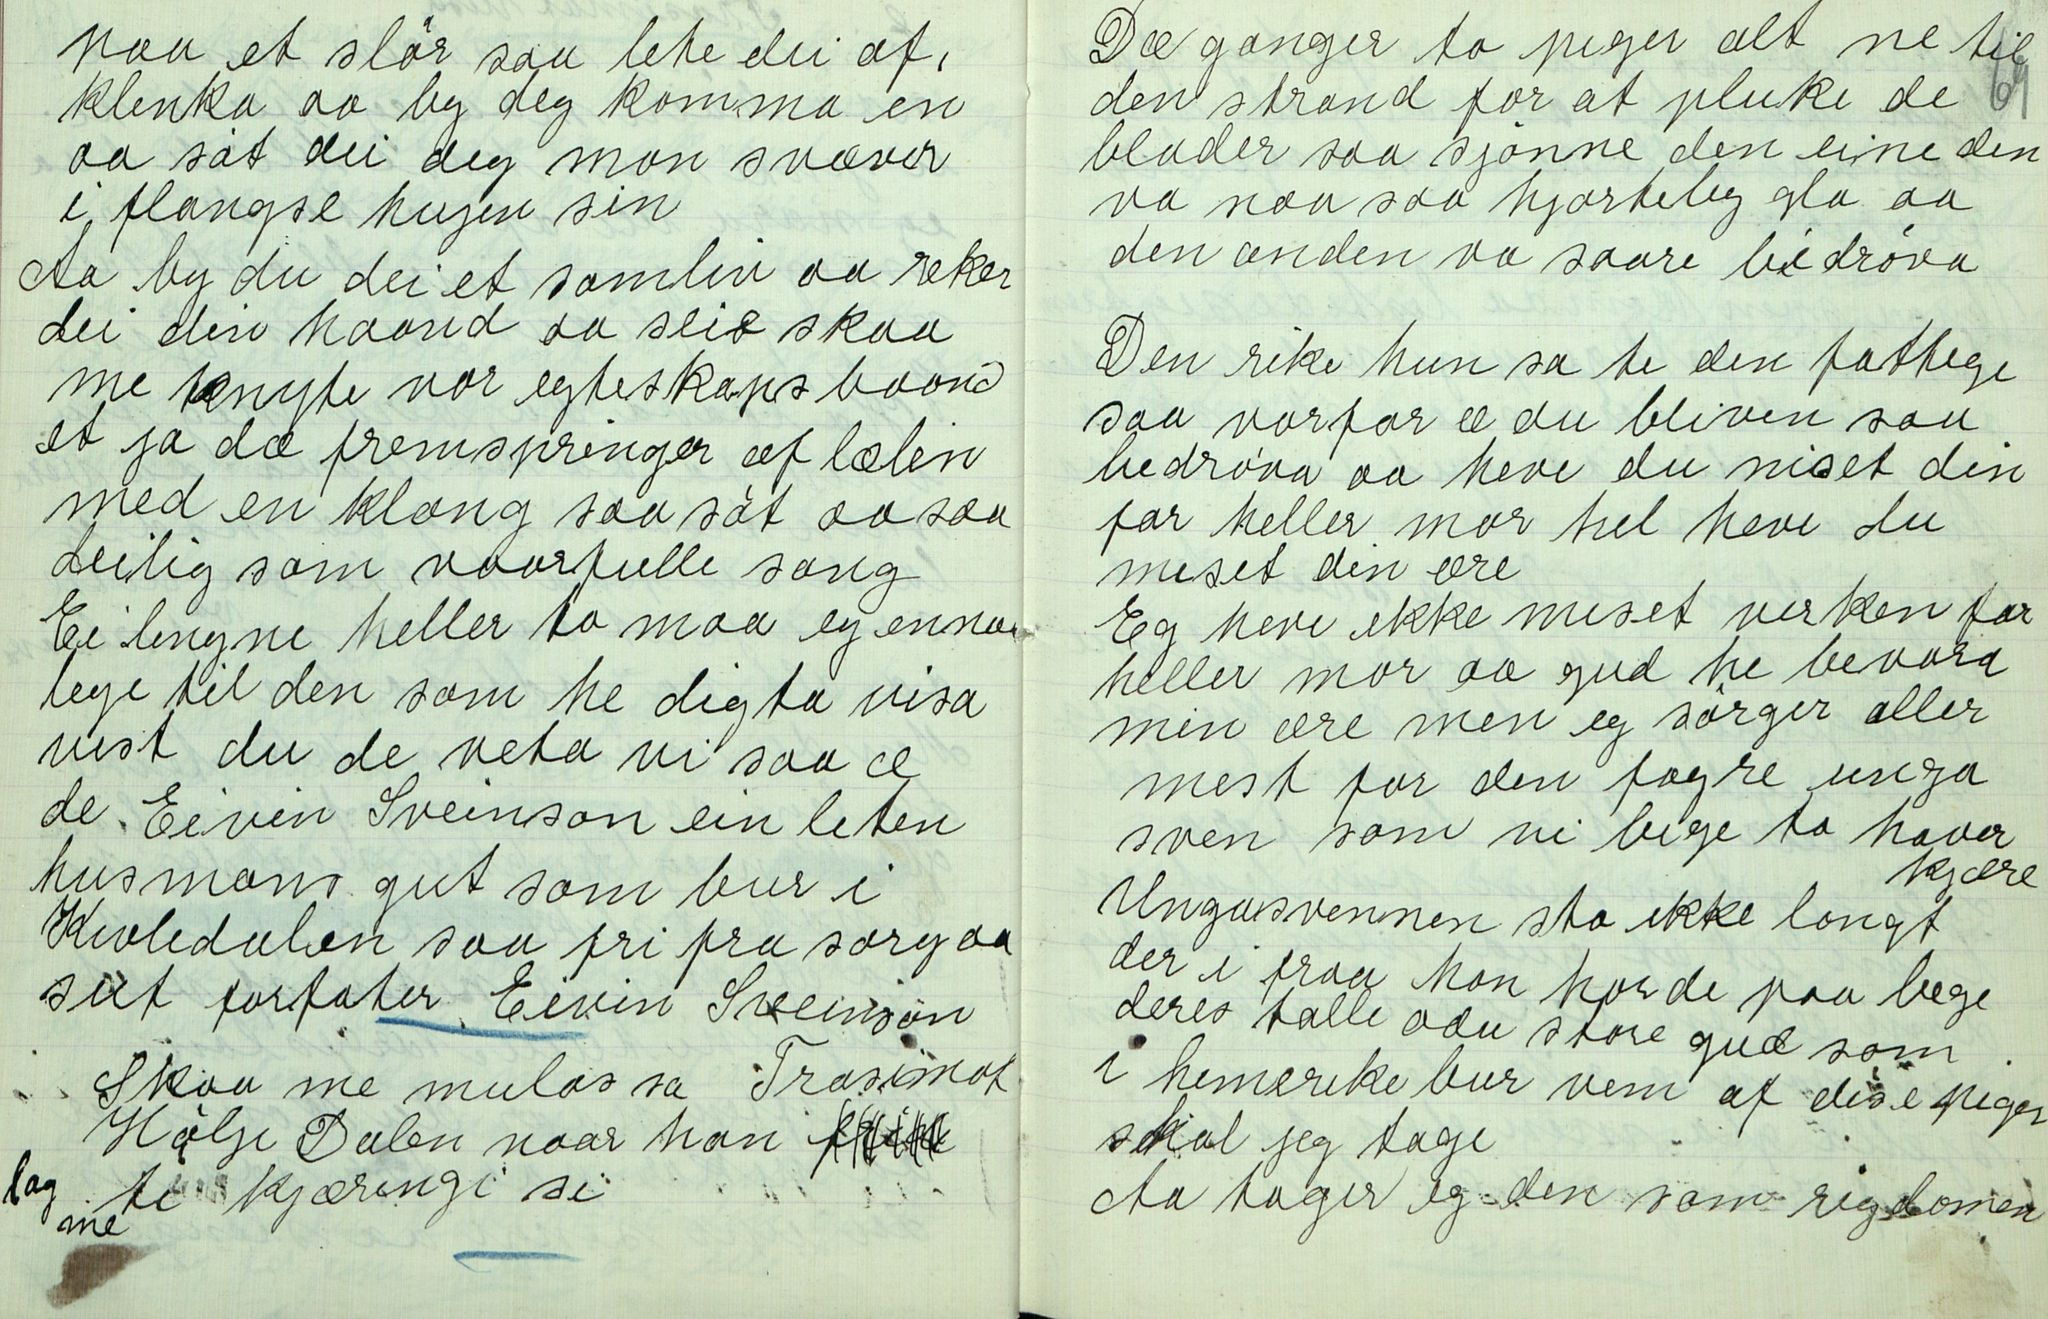 naa et slør saa lete dei af,
klenka aa by deg komma en
aa søt dei deg mon svæver
i flangse hugen sin
Aa by du dei et samliv aa reker
dei din haand aa sei skaa
me knyte vor egteskaps baand
et ja dæ fremspringer af lælin
med en klang saa søt aa saa
deilig som vaarfulle sang
Ei lengne heller to maa eg ennaa
lege til den som he digta visa
vist du de veta vi saa æ
de Eivin Sveinson ein leten
husmans gut som bur i
Kivledalen saa fri fra sorg aa
sut forfater Eivin Sveinson
Skaa me mulas sa Trasimot
Hølje Dalen naar han
lag me te kjæringi si
69
Dæ ganger to piger alt ne til
den strand for at pluke de
blader saa sjønne den eine den
va naa saa hjarteleg gla aa
den anden va saare bedrøva
Den rike hun sa te den fattege
saa varfor æ du bliven saa
bedrøva aa heve du miset din
far heller mor hel heve du
meset din ære
Eg heve ikke meset verken far
heller mor aa gud he bevara
min ære men eg sørger aller
mest for den fagre unga
sven som vi bege to haver
kjære
Ungasvennen sto ikke langt
der i fraa han horde paa bege
deres talle adu store gud som
i hemerike bur vem af dise piger
skal jeg tage
Aa tager eg den som rigdomen